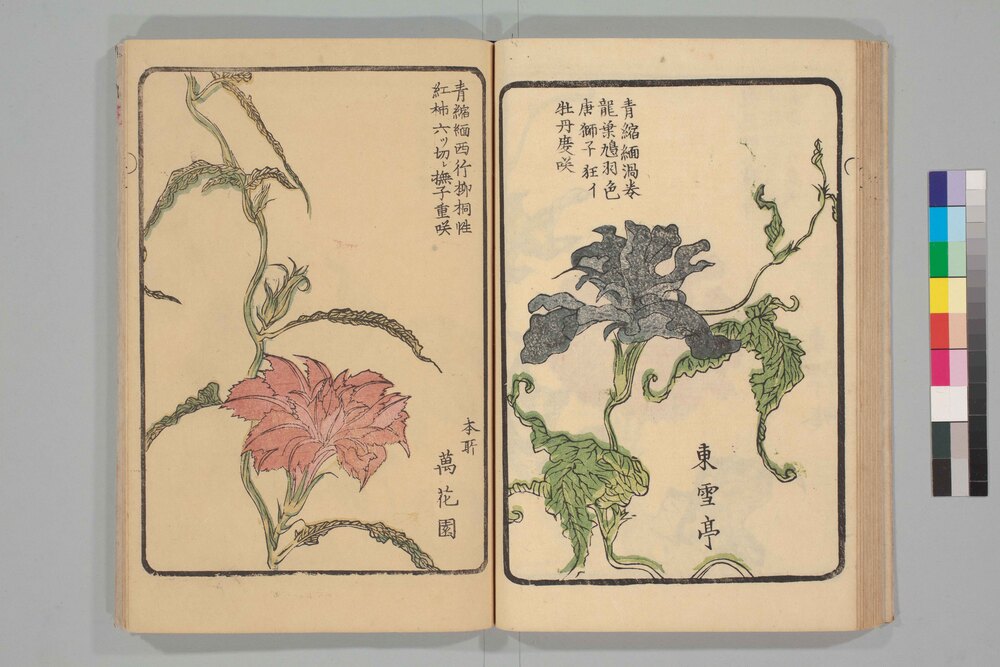 青縮緬渦巻
龍葉鳩羽色
唐獅子狂イ
牡丹度咲
東雪亭
青縮緬西行柳桐性
紅柿六ツ切レ撫子重咲
本所
萬花園